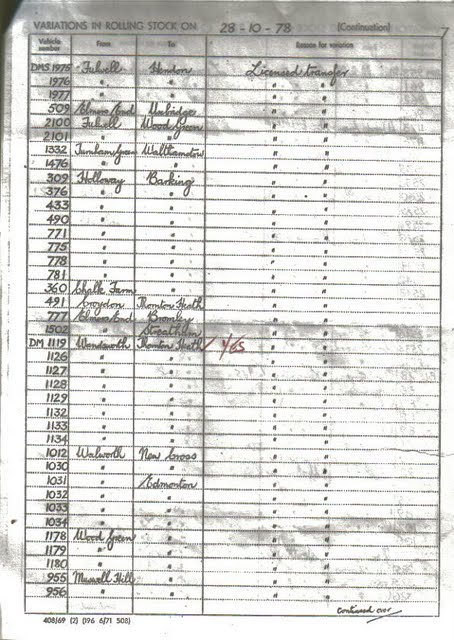 VARIATIONS IN ROLLING STOCK ON 28 - 10 - 78 (Continuation) 7
Vehicle number From To Reason for variation
DMS 1975 Fulwell Hendon Licensed transfer
1976 " " " "
1977 " " " "
509 Elmers End Uxbridge " "
2100 Fulwell Wood Green " "
2101 " " " "
1332 Turnham Green Walthamstow " "
1476 " " " "
309 Holloway Barking " "
376 " " " "
433 " " " "
490 " " " "
771 " " " "
775 " " " "
778 " " " "
781 " " " "
360 Chalk Farm " " "
491 Croydon Thornton Heath " "
777 Elmers End Bromley " "
1502 " Streatham " "
DM 1119 Wandsworth Thornton Heath ✓ YES " "
1126 " " " "
1127 " " " "
1128 " " " "
1129 " " " "
1132 " " " "
1133 " " " "
1134 " " " "
1012 Walworth New Cross " "
1030 " " " "
1031 " Edmonton " "
1032 " " " "
1033 " " " "
1034 " " " "
1178 Wood Green " " "
1179 " " " "
1180 " " " "
955 Muswell Hill " " "
956 " " " "
Continued over
408/69 (2) (196 6/71 508)